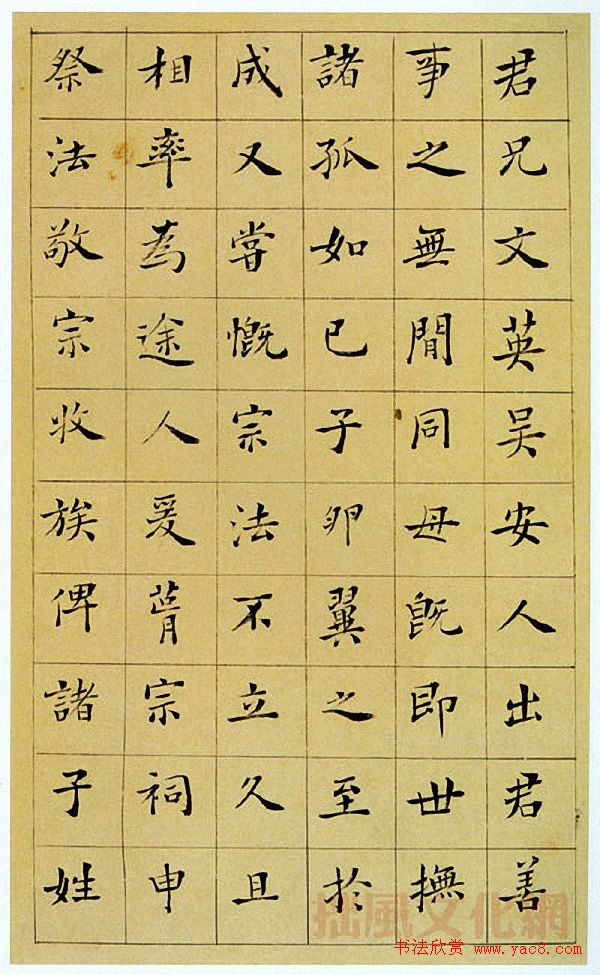 君兄文英吴安人出君善
事之無間同母既即世撫
諸孤如已子卵翼之至於
成又嘗慨宗法不立久且
相率為途人爰葺宗祠申
祭法敬宗收族俾諸子姓
摇風文化網
书法欣赏 www.yac8.com